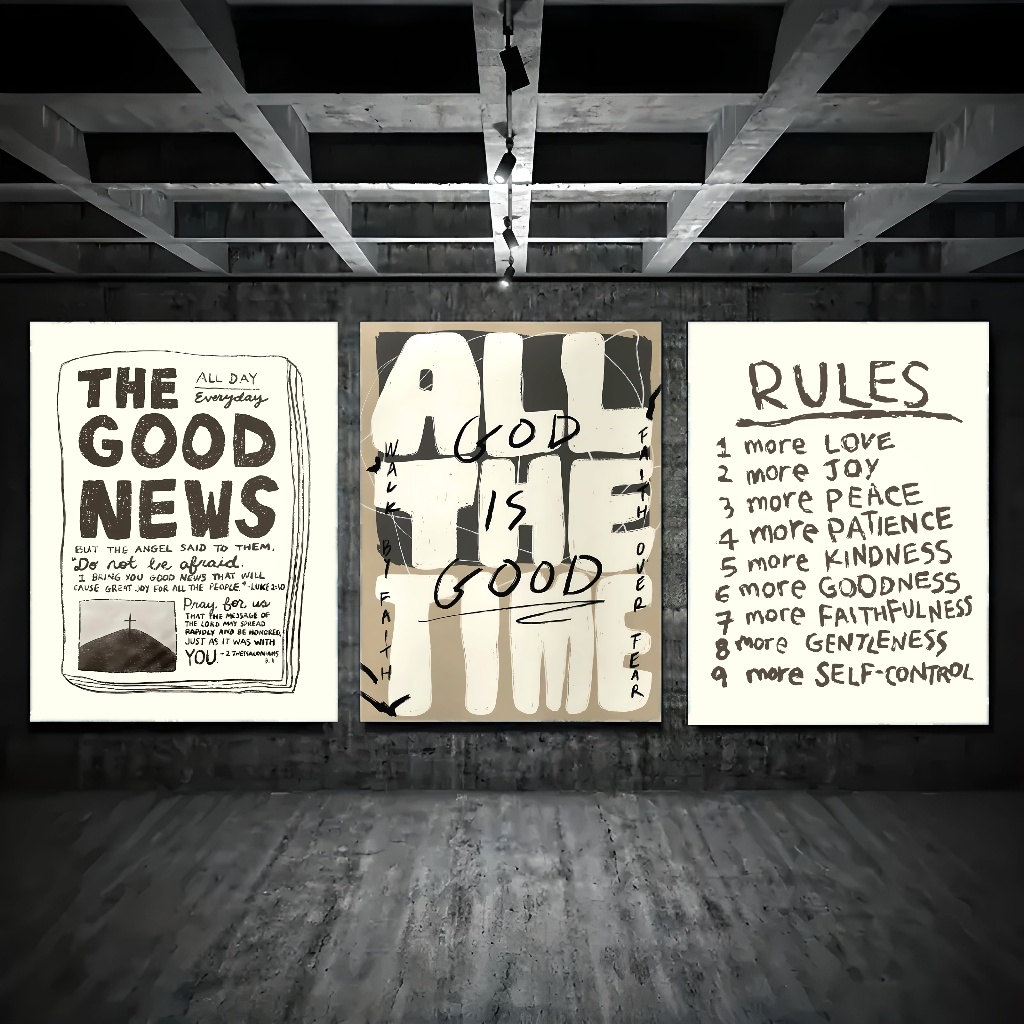 THE
ALL DAY
Everyday
GOOD
NEWS
BUT THE ANGEL SAID TO THEM,
"Do not be afraid.
I BRING YOU GOOD NEWS THAT WILL
CAUSE GREAT JOY FOR ALL THE PEOPLE." -LUKE 2:10
Pray for us
THAT THE MESSAGE OF
THE LORD MAY SPREAD
RAPIDLY AND BE HONORED,
JUST AS IT WAS WITH
YOU. -2 THESSALONIANS
3:1
ALL
THE
TIME
GOD
IS
GOOD
WALK BY FAITH
FAITH OVER FEAR
RULES
1 more LOVE
2 more JOY
3 more PEACE
4 more PATIENCE
5 more KINDNESS
6 more GOODNESS
7 more FAITHFULNESS
8 more GENTLENESS
9 more SELF-CONTROL